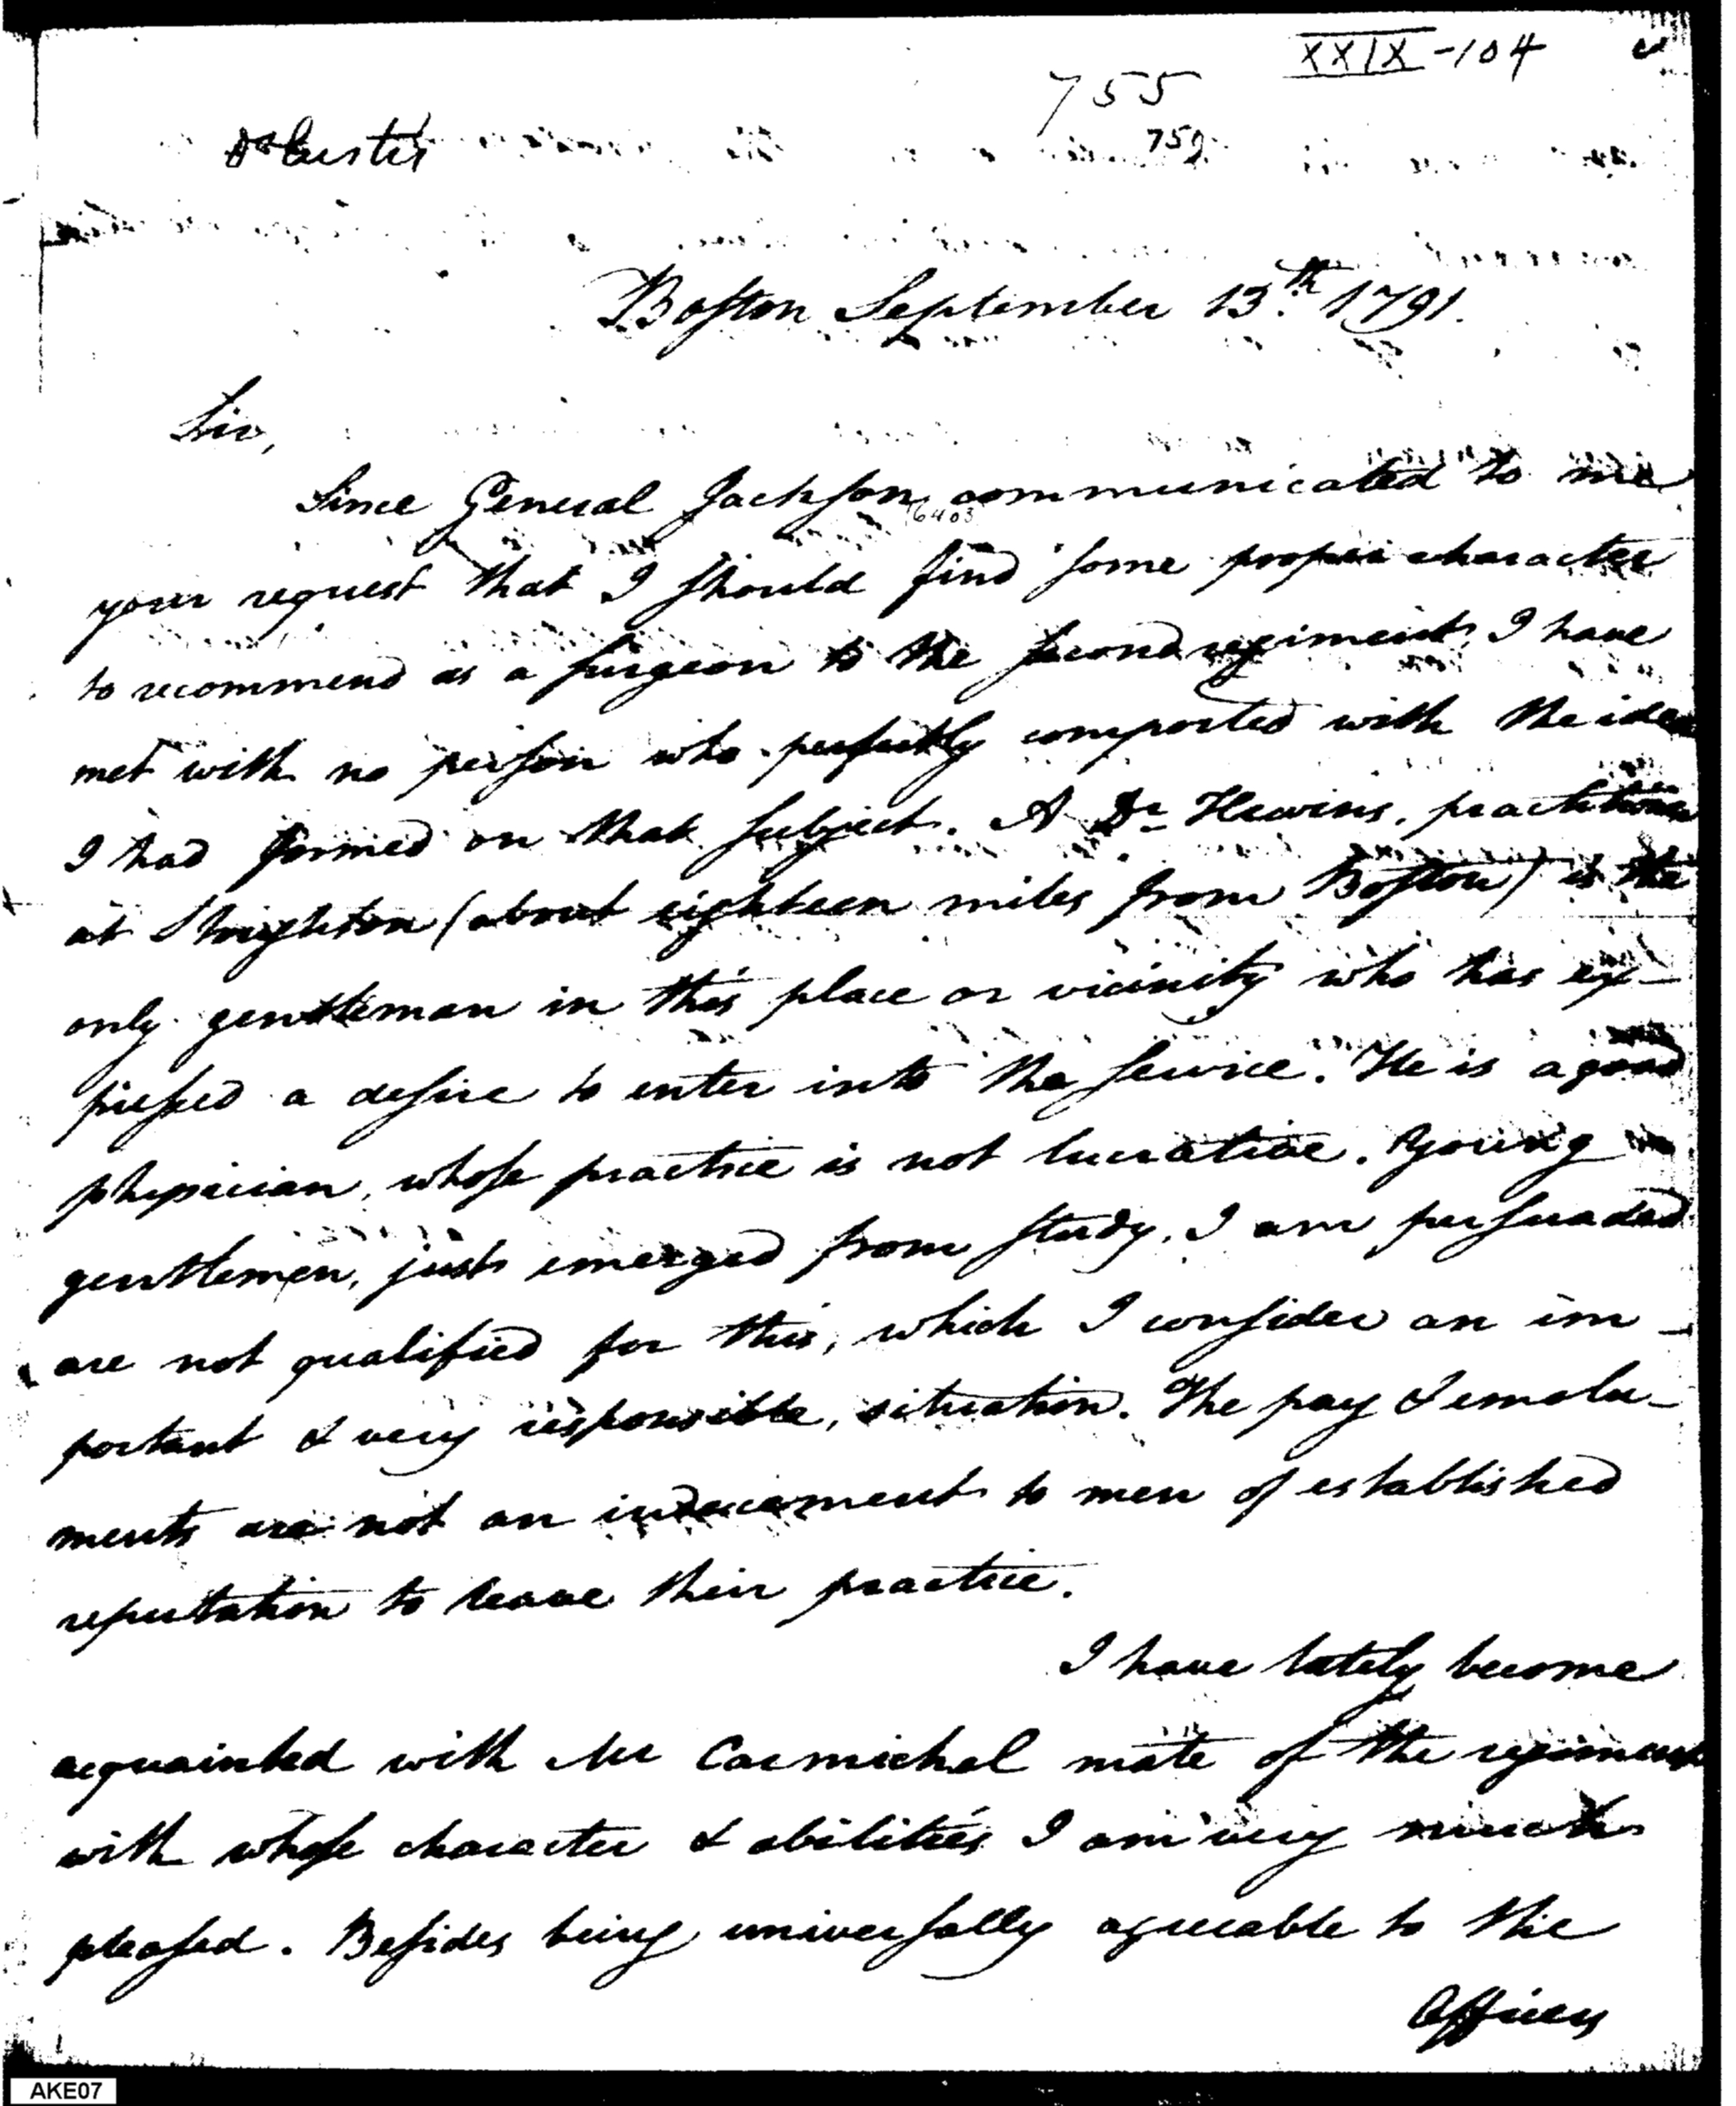 XXIX-104
755
759
Dr Eustis
Boston September 13.th 1791.
Sir,
Since General Jackson communicated to me
6403
your request that I should find some proper character
to recommend as a surgeon to the second regiment, I have
met with no person who perfectly comported with the idea
I had formed on that subject. A Dr Hewins, practitioner
at Stoughton (about eighteen miles from Boston) is the
only gentleman in this place or vicinity who has ex-
pressed a desire to enter into the service. He is a good
physician, whose practice is not lucrative. Young
gentlemen, just emerged from study, I am persuaded
are not qualified for this, which I consider an im-
portant & very responsible, situation. The pay & emolu-
ments are not an inducement to men of established
reputation to leave their practice.
I have lately become
acquainted with Mr Carmichal mate of the regiment
with whose character & abilities I am very much
pleased. Besides being universally agreeable to the
Officers
AKE07